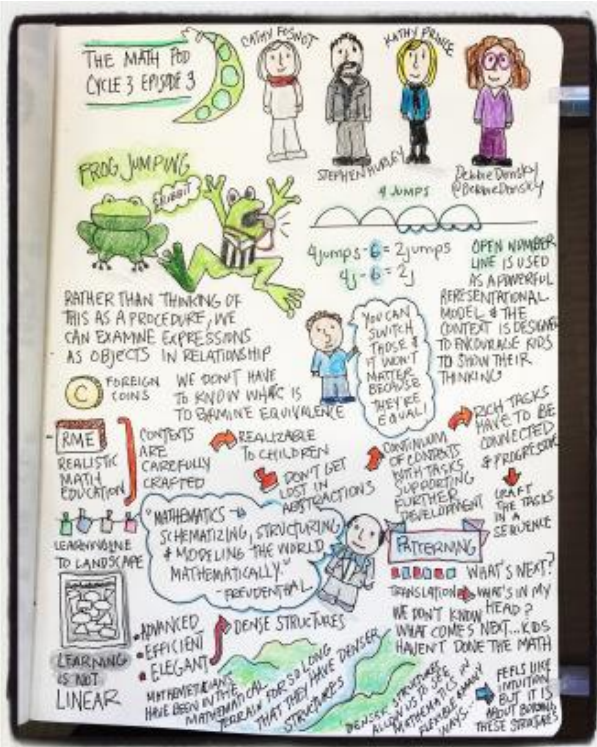 THE MATH POD
CYCLE 3 EPISODE 3
CATHY FOSNOT
STEPHEN HURLEY
KATHY PRINCE
Debbie Donsky
@DebbieDonsky
FROG JUMPING
RIBBIT
4 JUMPS
4jumps-6=2jumps
4j-6=2j
OPEN NUMBER
LINE IS USED
AS A POWERFUL
REPRESENTATIONAL
MODEL & THE
CONTEXT IS DESIGNED
TO ENCOURAGE KIDS
TO SHOW THEIR
THINKING
RATHER THAN THINKING OF
THIS AS A PROCEDURE, WE
CAN EXAMINE EXPRESSIONS
AS OBJECTS IN RELATIONSHIP
"YOU CAN
SWITCH
THOSE &
IT WON'T
MATTER
BECAUSE
THEY'RE
EQUAL!
C
FOREIGN
COINS
WE DON'T HAVE
TO KNOW WHAT IS
TO EXAMINE EQUIVALENCE
RME
REALISTIC
MATH
EDUCATION
CONTEXTS
ARE
CAREFULLY
CRAFTED
REALIZABLE
TO CHILDREN
DON'T GET
LOST IN
ABSTRACTIONS
CONTINUUM
OF CONTEXTS
WITH TASKS
SUPPORTING
FURTHER
DEVELOPMENT
RICH TASKS
HAVE TO BE
CONNECTED
& PROGRESSIVE
CRAFT
THE TASKS
IN A
SEQUENCE
LEARNING LINE
TO LANDSCAPE
LEARNING
IS NOT
LINEAR
"MATHEMATICS
SCHEMATIZING, STRUCTURING
& MODELING THE WORLD
MATHEMATICALLY."
-FREUDENTHAL
PATTERNING
WHAT'S NEXT?
TRANSLATION
WHAT'S IN MY
HEAD?
WE DON'T KNOW
WHAT COMES NEXT...KIDS
HAVEN'T DONE THE MATH
• ADVANCED
• EFFICIENT
• ELEGANT
DENSE STRUCTURES
MATHEMETICIANS
HAVE BEEN IN THE
MATHEMATICAL
TERRAIN FOR SO LONG
THAT THEY HAVE DENSER
STRUCTURES
DENSER STRUCTURES
ALLOW US TO SEE
MATHEMATICS IN
FLEXIBLE MANY
WAYS...
FEELS LIKE
INTUITION
BUT IT IS
ABOUT BUILDING
THESE STRUCTURES